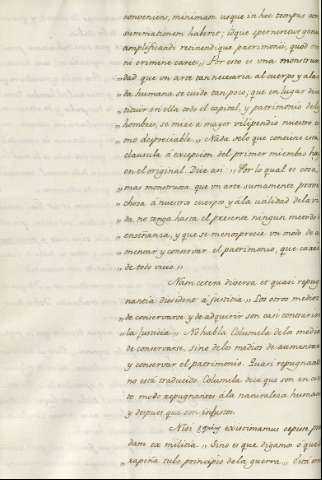 conveniens, minimam usque in hoc tempus con
summationem haberet; idque sperneretur genus
amplificandi retinendique patrimonii, quod om
ni crimine caret.,, Por esto es una monstruo
,, dad que un arte tan necesaria al cuerpo y a la
,, da humana se cuide tan poco, que en lugar de
,, tituir en ella todo el capital, y patrimonio de lo
,, hombres, se mire a mayor vilipendio nuestro co
,, mo despreciable.,, Nada de lo que contiene esta
,, clausula á excepcion del primer miembro hay
,, en el original. Dice asi ,, Por lo qual es cosa
,, mas monstruosa que un arte sumamente prove
,, chosa á nuestro cuerpo y á la utilidad de la vi
,, da, no tenga hasta el presente ningun metodo de
,, enseñanza, y que se menosprecie un modo de au
,, mentar y conservar el patrimonio, que carece
,, de todo vicio.,,
Nam cetera diversa et quasi repug
nantia dissident á justitia ,, Los otros medios
,, de conservarse y de adquirir son tan contrarios
,, la Justicia ,, No habla Columela de los medios
de conservarse, sino de los medios de aumentar
y conservar el patrimonio. Quasi repugnantia
no está traducido. Columela dice que son en cier
to modo repugnantes á la naturaleza humana
y despues que son injustos.
Nisi equius existimamus cepisse præ
dam ex militia ,, Sino es que digamos ó que
,, rapiña tubo principio de la guerra ,, Está mal